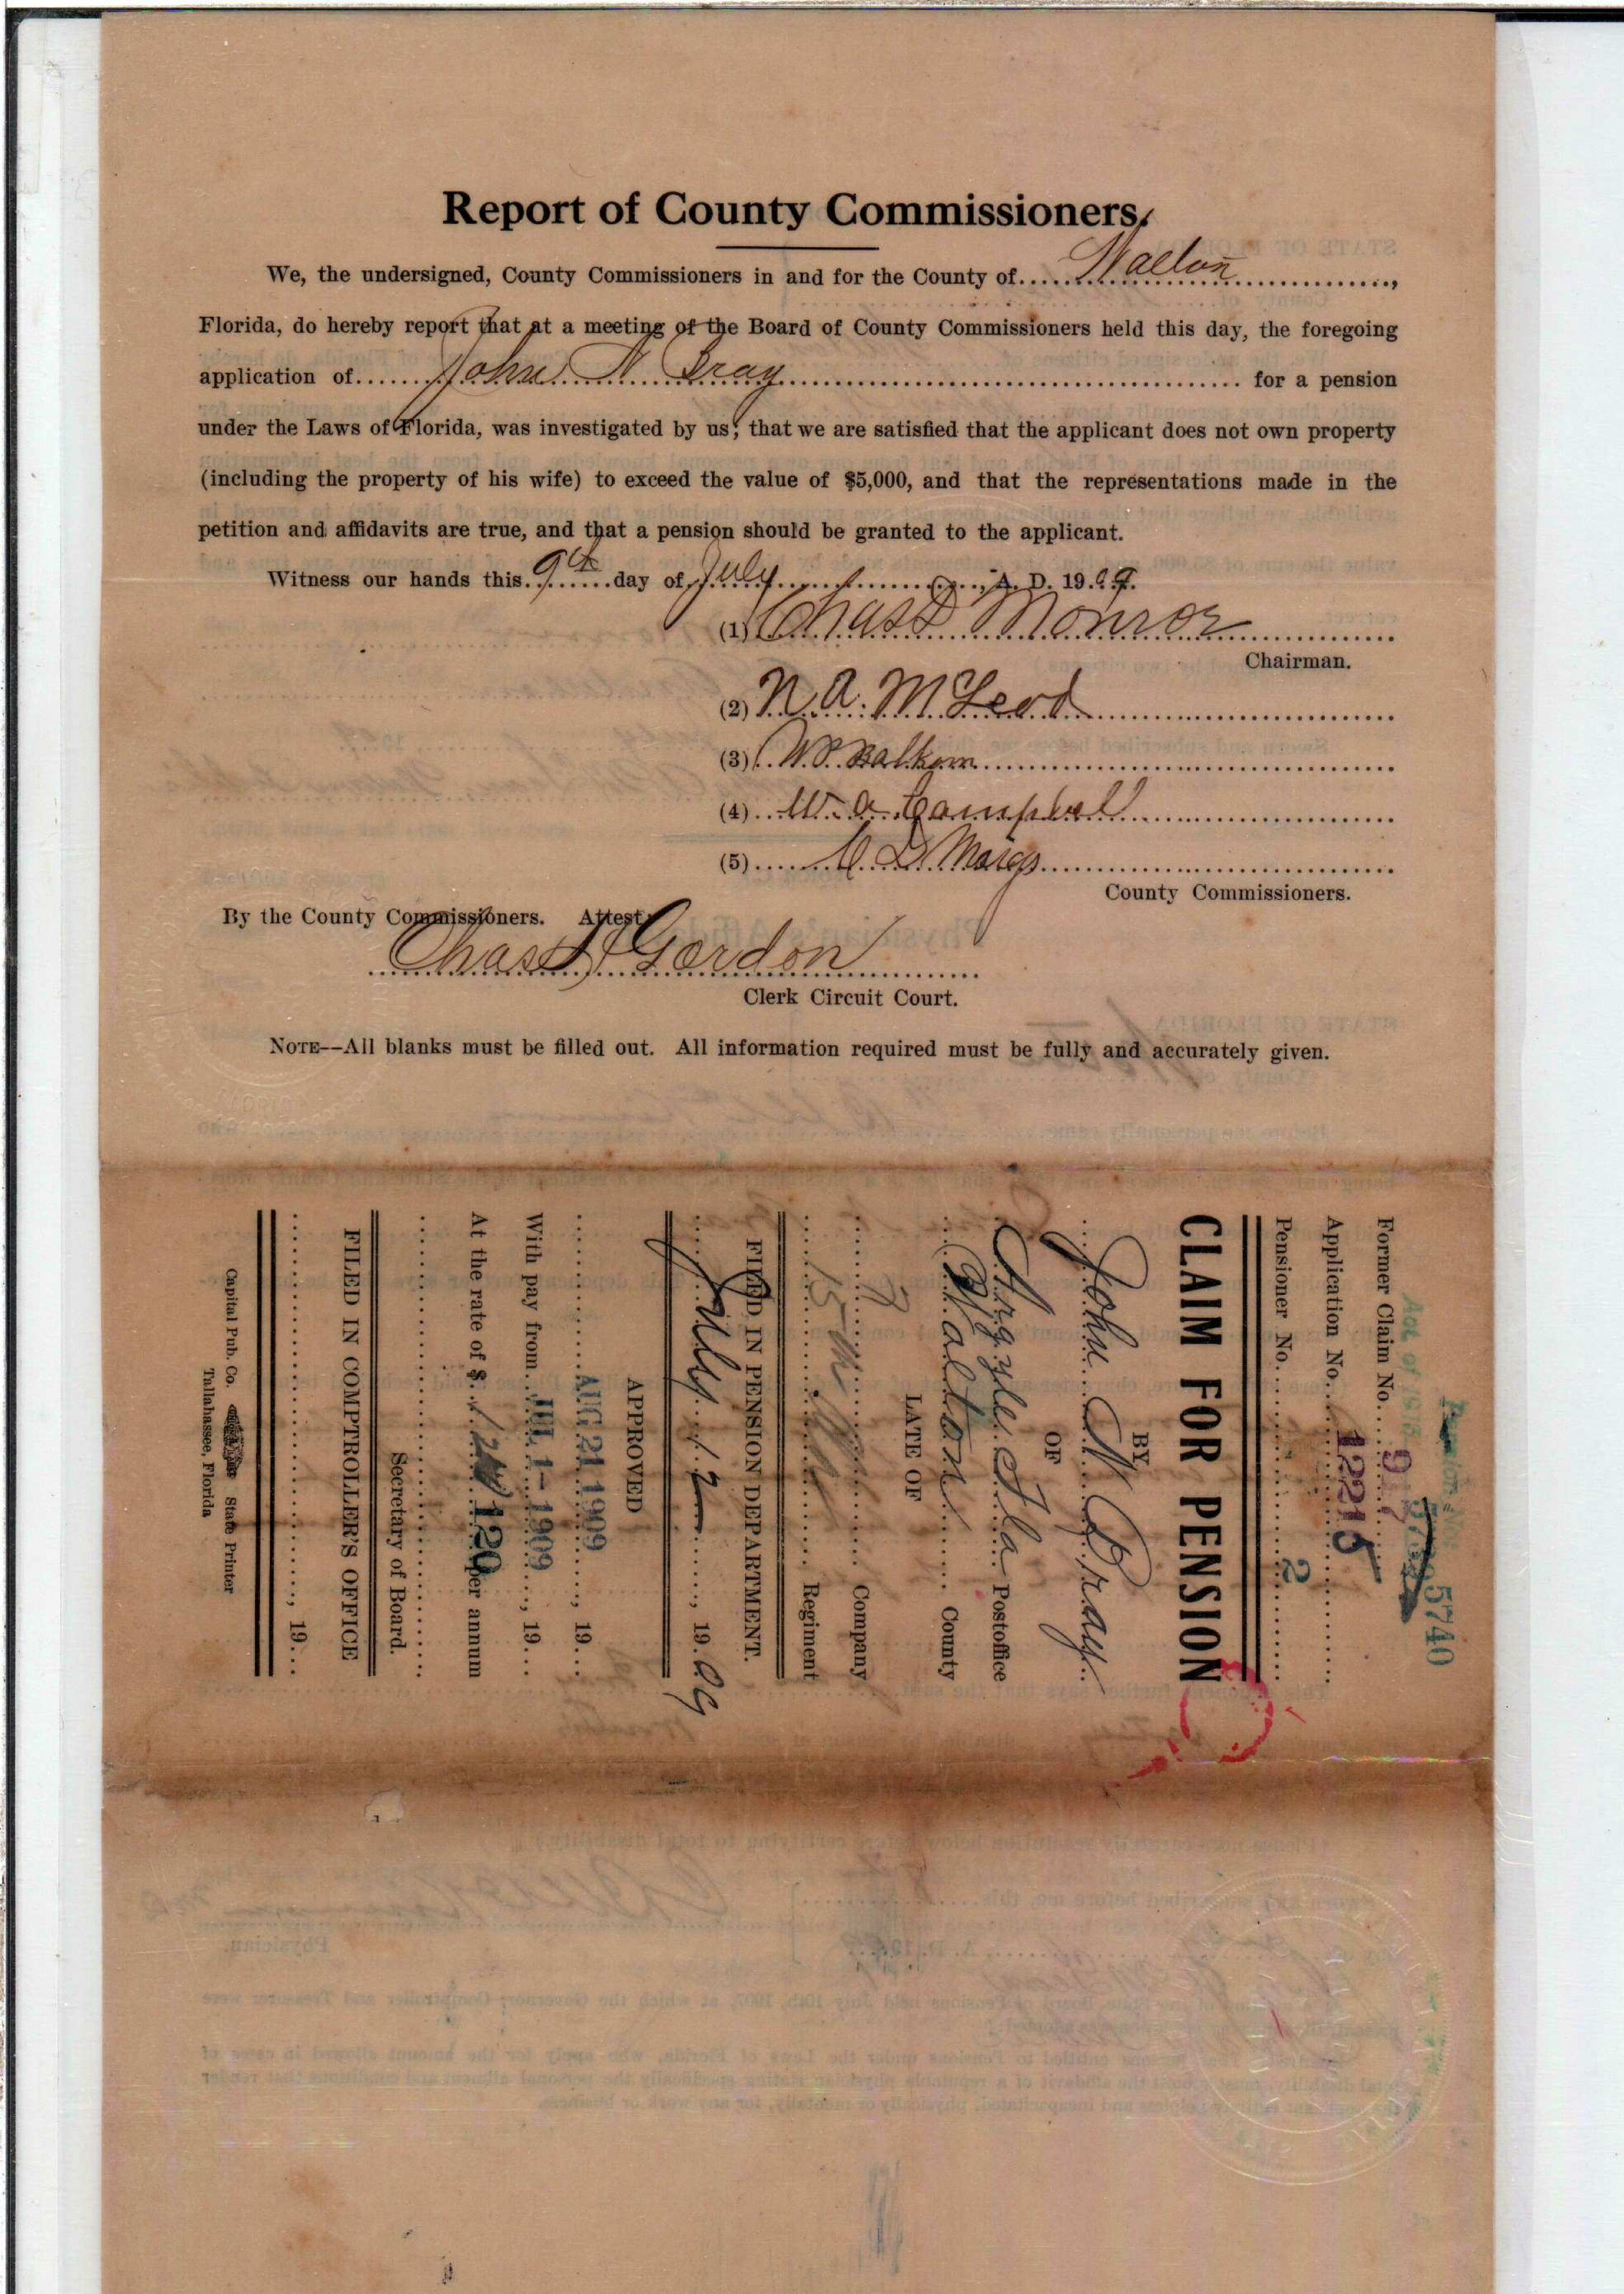 Report of County Commissioners.
We, the undersigned, County Commissioners in and for the County of Walton,
Florida, do hereby report that at a meeting of the Board of County Commissioners held this day, the foregoing
application of John N Bray for a pension
under the Laws of Florida, was investigated by us; that we are satisfied that the applicant does not own property
(including the property of his wife) to exceed the value of $5,000, and that the representations made in the
petition and affidavits are true, and that a pension should be granted to the applicant.
Witness our hands this 9th day of July, A. D. 1909.
(1) Chas D Monroe
Chairman.
(2) N. A. McLeod
(3) W. P. Balkom
(4) W. A. Campbel
(5)
County Commissioners.
By the County Commissioners. Attest:
Chas Gordon
Clerk Circuit Court.
NOTE--All blanks must be filled out. All information required must be fully and accurately given.
5740
Act of
Former Claim No. 97
Application No. 12215
Pensioner No. 2
CLAIM FOR PENSION
BY
John N Bray
OF
Argyle Fla Postoffice
Walton County
LATE OF
Company
15 Regiment
FILED IN PENSION DEPARTMENT.
July 12, 1909
APPROVED
AUG 21 1909, 19
With pay from JUL 1-1909, 19
At the rate of $ 120 120 per annum
Secretary of Board.
FILED IN COMPTROLLER'S OFFICE
, 19
Capital Pub. Co. State Printer
Tallahassee, Florida